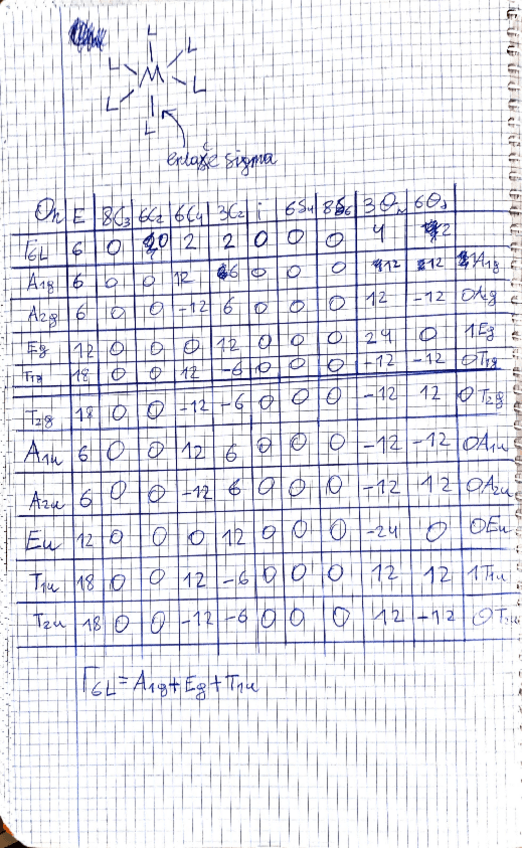 L
L L
M
L L
L
enlace sigma
Oh E 8C3 6C2 6C4 3C2 i 6S4 8S6 3σh 6σd
Γ6L 6 0 0 2 2 0 0 0 4 2
A1g 6 0 0 12 6 0 0 0 12 12 1A1g
A2g 6 0 0 -12 6 0 0 0 12 -12 0Ag
Eg 12 0 0 0 12 0 0 0 24 0 1Eg
T1g 18 0 0 12 -6 0 0 0 -12 -12 0T1g
T2g 18 0 0 -12 -6 0 0 0 -12 12 0T2g
A1u 6 0 0 12 6 0 0 0 -12 -12 0A1u
A2u 6 0 0 -12 6 0 0 0 -12 12 0A2u
Eu 12 0 0 0 12 0 0 0 -24 0 0Eu
T1u 18 0 0 12 -6 0 0 0 12 12 1T1u
T2u 18 0 0 -12 -6 0 0 0 12 -12 0T2u
Γ6L = A1g + Eg + T1u